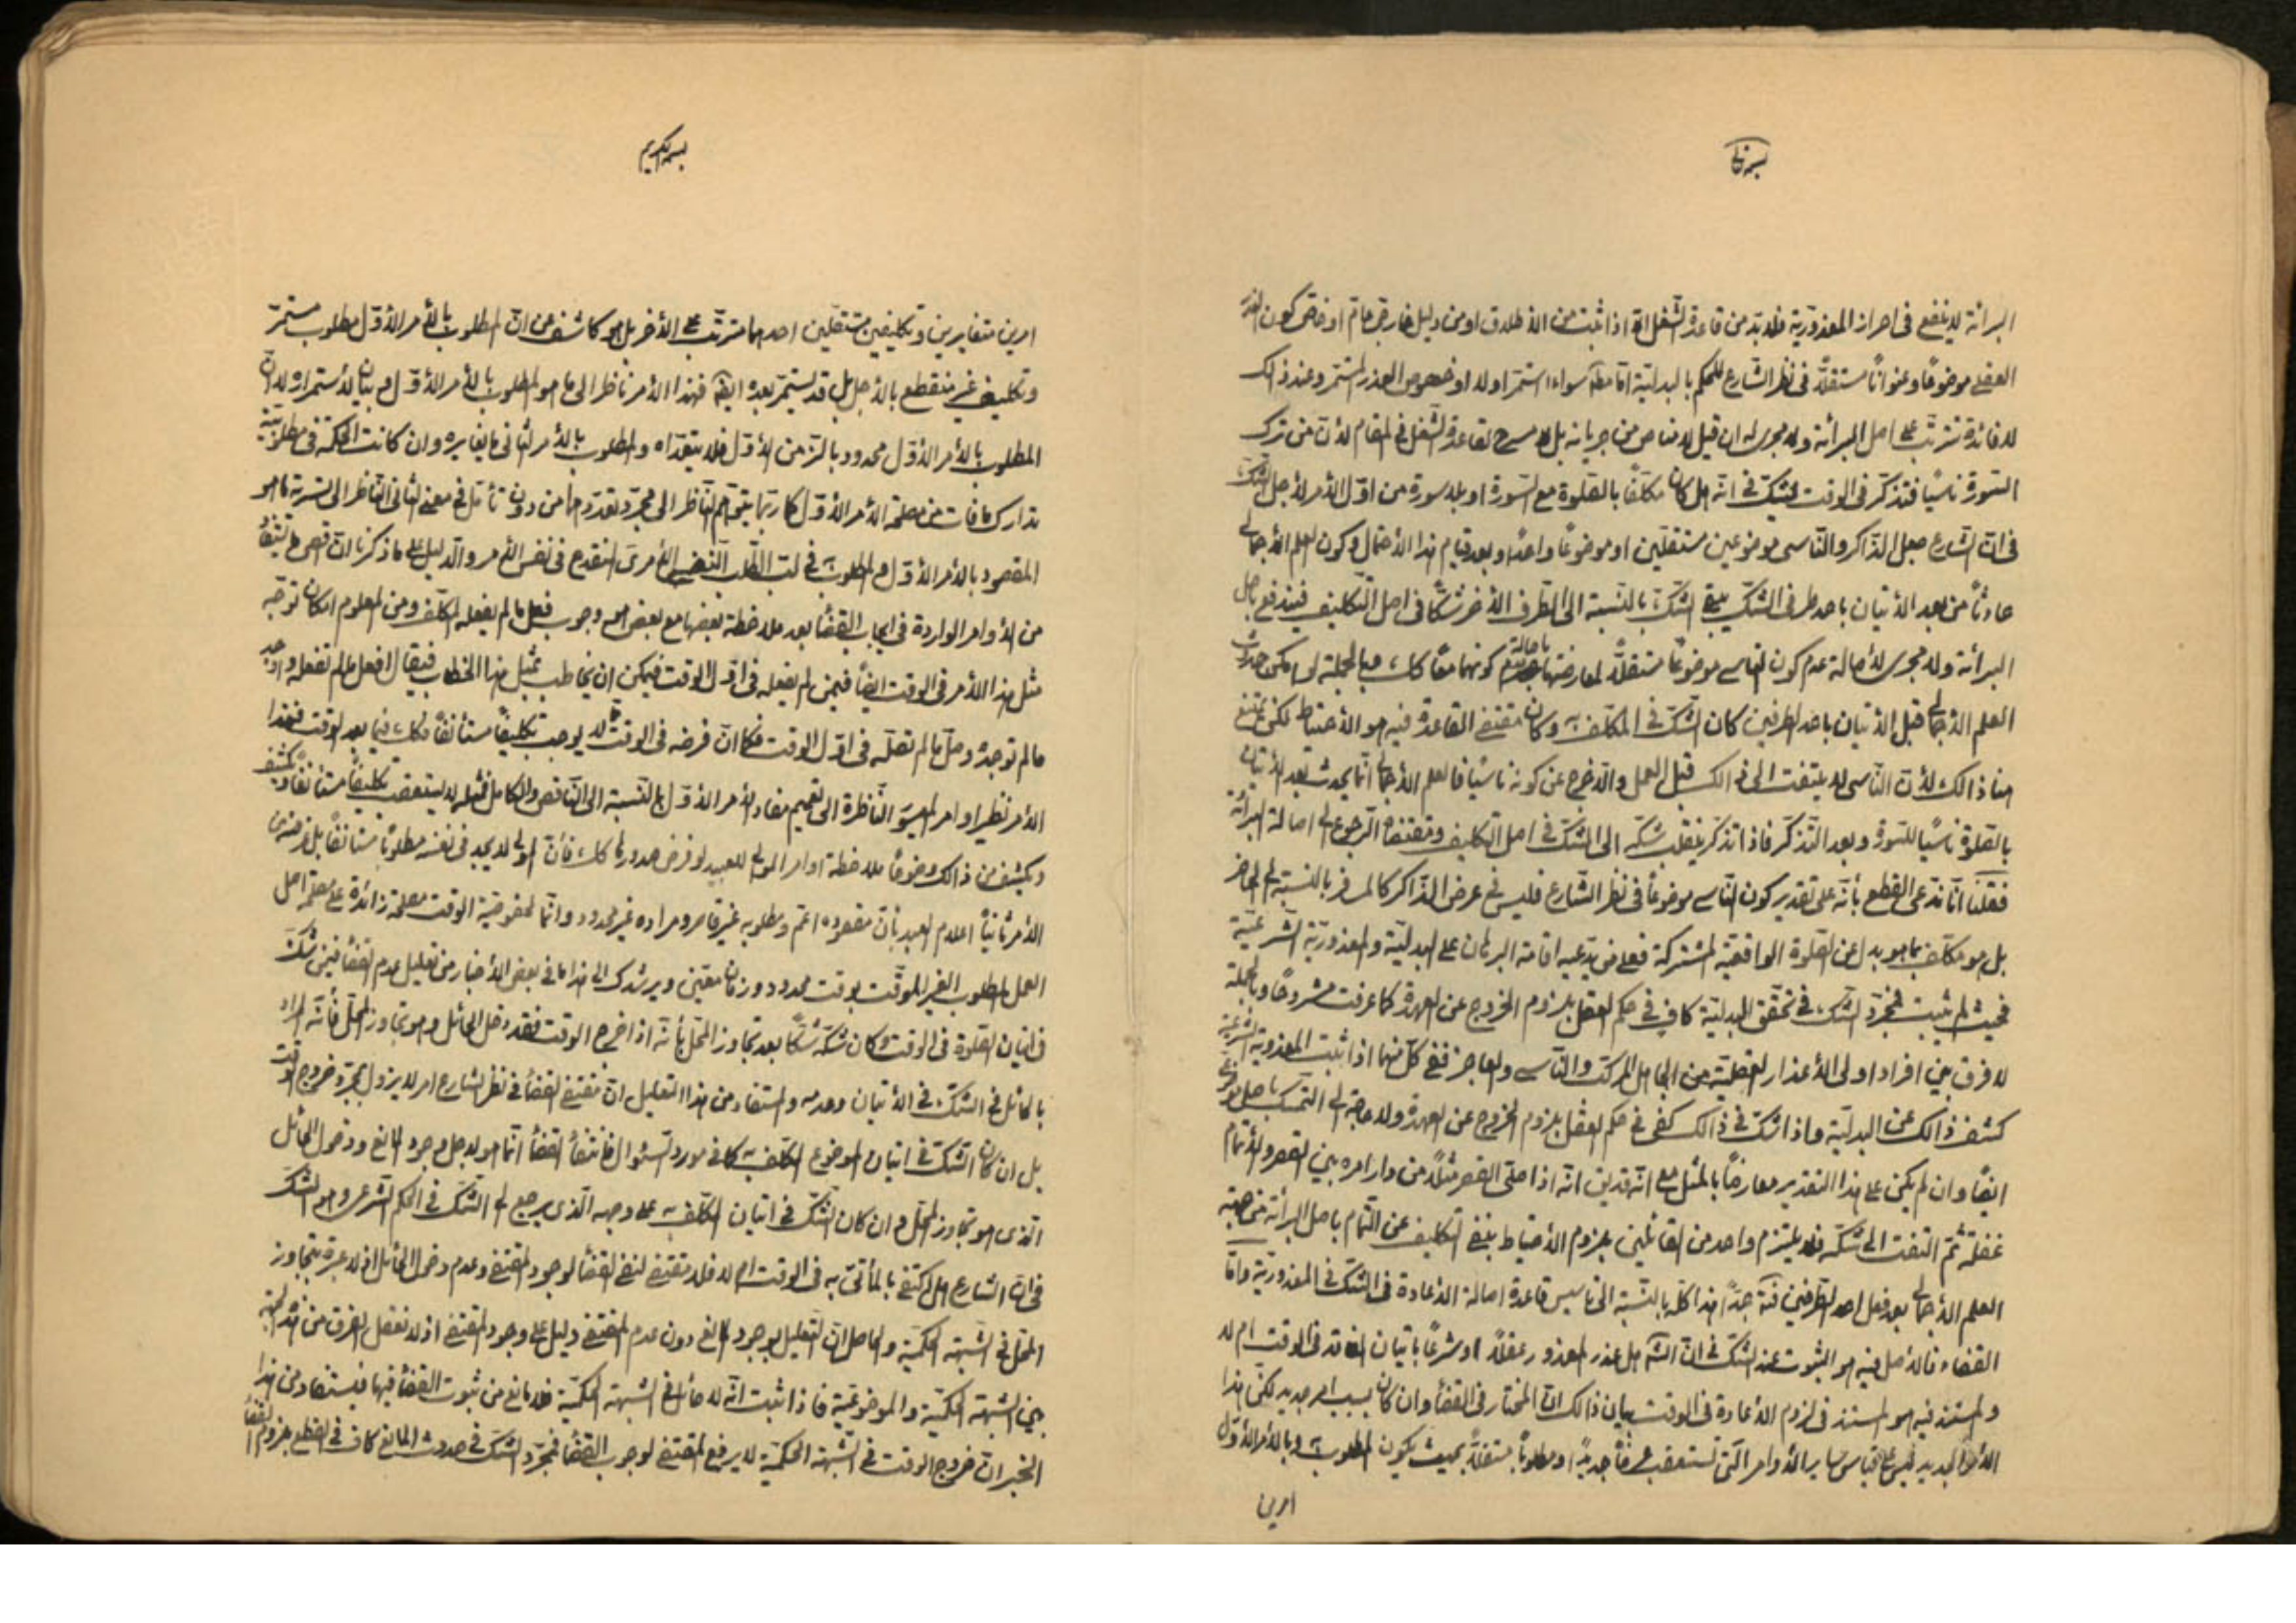 بسمه تعالی
البرائة لا ينفع فى احراز المعذورية فلا بد من قاعدة الشغل الا اذا ثبت من الاطلاق او من دليل خارجى عام او خاص كون العذر
العقلى موضوعًا وعنوانًا مستقلًا فى نظر الشارع للحكم بالبدلية اما مطلقا سواء استمر او لا او خصوص العذر المستمر وعند ذالك
لا فائدة تترتب على اصل البرائة ولا مجرى له ان قيل لا مناص من جريانه بل لا مسرح لقاعدة الشغل فى المقام لأن من ترك
السورة ناسيًا فتذكر فى الوقت يشك فى انه هل كان مكلفًا بالصلوة مع السورة او بلا سورة من اول الأمر لأجل الشك
فى ان الشارع جعل الذاكر والناسى موضوعين مستقلين او موضوعًا واحدًا وبعد قيام هذا الاحتمال وكون العلم الاجمالى
حادثًا من بعد الاتيان باحد طرفى الشك يبقى الشك بالنسبة الى الطرف الآخر شكًا فى اصل التكليف فيندفع باصل
البرائة ولا مجرى لأصالة عدم كون الناسى موضوعًا مستقلًا لمعارضتها باصالة عدم كونهما معًا كك وبالجملة لو امكن حدوث
العلم الاجمالى قبل الاتيان باحد الطرفين كان الشك فى المكلف به وكان مقتضى القاعدة فيه هو الاحتياط لكن يمتنع
هنا ذالك لأن الناسى لا يلتفت الى ذالك قبل العمل والا خرج عن كونه ناسيًا فالعلم الاجمالى انما يحدث بعد الاتيان
بالصلوة ناسيًا للسورة وبعد التذكر فاذا تذكر ينقلب شكه الى الشك فى اصل التكليف ومقتضاه الرجوع الى اصالة البرائة
فقلنا انا ندعى القطع بأنه على تقدير كون الناسى موضوعًا فى نظر الشارع فليس فى عرض الذاكر كالمسافر بالنسبة الى الحاضر
بل هو مكلف بما هو بدل عن الصلوة الواقعية المشتركة فعلى من يدعيه اقامة البرهان على البدلية والمعذورية الشرعية
فحيث لم يثبت فمجرد الشك فى تحقق البدلية كاف فى حكم العقل بلزوم الخروج عن العهدة كما عرفت مشروحًا وبالجملة
لا فرق بين افراد اولى الأعذار العقلية من الجاهل المركب والناسى والعاجز ففى كل منهما اذا ثبت المعذورية الشرعية
كشف ذالك عن البدلية واذا شك فى ذالك كفى فى حكم العقل بلزوم الخروج عن العهدة ولا حاجة الى التمسك باصل
ايضًا وان لم يكن على هذا التقدير معارضًا بالمثل مع انه قد يق انه اذا صلى القصر مثلًا من دار امره بين القصر والاتمام
غفلة ثم التفت الى شكه فلا يلتزم واحد من القائلين بلزوم الاحتياط بنفى التكليف عن التمام باصل البرائة من جهة
العلم الاجمالى بعد فعل احد الطرفين فتأمل جدًا هذا كله بالنسبة الى تاسيس قاعدة اصالة الاعادة فى الشك فى المعذورية واما
القضاء فالأصل فيه هو الثبوت عند الشك فى ان الشخص هل عذر المعذور عقلًا او شرعًا باتيان الفاقد فى الوقت ام لا
والمستند فيه هو المستند فى لزوم الاعادة فى الوقت بيان ذالك ان المختار فى القضاء وان كان بسبب امر جديد لكن هذا
الأمر الجديد ليس على قياس ساير الأوامر التى تستعقب شيئًا جديدًا او مطلوبًا مستقلًا بحيث يكون المطلوب به وبالأمر الأول
امرين
بسمه الكريم
امرين متغايرين وتكليفين مستقلين احدهما مترتب على الأخر بل هو كاشف عن ان المطلوب بالأمر الأول مطلوب مستمر
وتكليف غير منقطع بالأجل بل قد يستمر بعده ايضا فهذا الأمر ناظر الى ما هو المطلوب بالأمر الأول وبيان لأستمراره لا ان
المطلوب بالأمر الأول محدود بالزمن الأول فلا يتعداه والمطلوب بالأمر الثانى ما يغايره وان كانت الحكمة فى مطلوبيته
تدارك ما فات من مصلحة الأمر الأول كما ربما يتوهم الناظر الى مجرد تعددهما من دون تأمل فى معنى الثانى الناظر الى تسرية ما هو
المقصود بالأمر الأول والمطلوب فى لب الطلب النفس الأمرى المنقدح فى نفس الأمر والدليل على ما ذكرنا ان اقصى ما يستفاد
من الأوامر الواردة فى ايجاب القضاء بعد ملاحظة بعضها مع بعض هو وجوب فعل ما لم يفعله المكلف ومن المعلوم امكان توجه
مثل هذا الأمر فى الوقت ايضًا فيمن لم يفعله فى اول الوقت فيمكن ان يخاطب بمثل هذا الخطاب فيقال افعل ما لم تفعله واوجد
ما لم توجده وصل ما لم تصله فى اول الوقت فكما ان فرضه فى الوقت لا يوجب تكليفًا مستأنفًا فكك فيما بعد الوقت فهذا
الأمر نظير اوامر الميسور الناظرة الى تعميم مفاد الأمر الأول بالنسبة الى الناقص والكامل فمثله لا يستعقب تكليفًا مستأنفًا
ويكشف عن ذالك وضوحًا ملاحظة اوامر الموالى للعبيد لو فرض صدورها كك فأن المولى لا يجد فى نفسه مطلوبًا مستأنفًا بل غرضه من
الأمر ثانيًا اعلام العبد بأن مقصوده اعم ومطلوبه غير قاصر ومراده غير محدود وانما لخصوصية الوقت مصلحة زائدة على مصلحة اصل
العمل المطلوب الغير الموقت بوقت محدود وزمان معين ويرشدك الى هذا ما فى بعض الأخبار من تعليل عدم القضاء فيمن شك
فى اتيان الصلوة فى الوقت وكان شكه شكًا بعد تجاوز المحل بأنه اذا خرج الوقت فقد دخل الحائل وهو تجاوز المحل فأنه المراد
بالحائل فى الشك فى الأتيان وعدمه والمستفاد من هذا التعليل ان مقتضى القضاء فى نظر الشارع امر لا يزول بمجرد خروج الوقت
بل ان كان الشك فى اتيان الموضوع المكلف به كما فى مورد السئوال فانتفاء القضاء انما هو لأجل وجود المانع ودخول الحائل
الذى هو تجاوز المحل وان كان الشك فى اتيان المكلف به على وجهه الذى يرجع الى الشك فى الحكم الشرعى وهو الشك
فى ان الشارع هل اكتفى بالمأتى به فى الوقت ام لا فلا مقتضى لنفى القضاء لوجود المقتضى وعدم دخول الحائل اذ لا عبرة بتجاوز
المحل فى الشبهة الحكمية والحاصل ان التعليل بوجود المانع دون عدم المقتضى دليل على وجود المقتضى اذ لا نعقل الفرق من هذه الجهة
بين الشبهة الحكمية والموضوعية فاذا ثبت انه لا حائل فى الشبهة الحكمية فلا مانع من ثبوت القضاء فيها فيستفاد من هذا
الخبر ان خروج الوقت فى الشبهة الحكمية لا يرفع المقتضى لوجوب القضاء فمجرد الشك فى حدوث المانع كاف فى القطع بلزوم القضاء